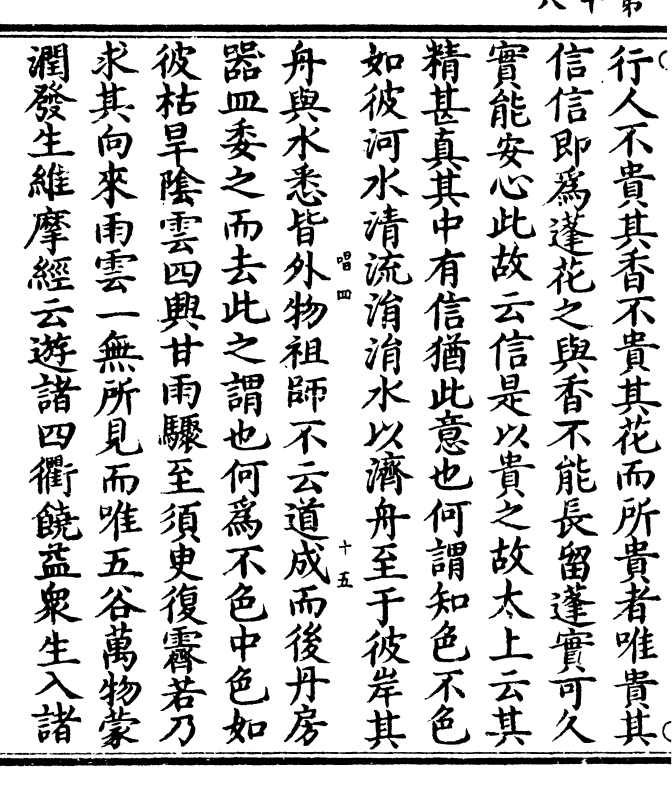 行人不貴其香不貴其花而所貴者唯貴其
信信即爲蓬花之與香不能長留蓬實可久
實能安心此故云信是以貴之故太上云其
精甚真其中有信猶此意也何謂知色不色
如彼河水清流淯淯水以濟舟至于彼岸其
唱四 十五
舟與水悉皆外物祖師不云道成而後丹房
器皿委之而去此之謂也何爲不色中色如
彼枯旱陰雲四興甘雨驟至須臾復霽若乃
求其向來雨雲一無所見而唯五谷萬物蒙
潤發生維摩經云遊諸四衢饒益衆生入諸